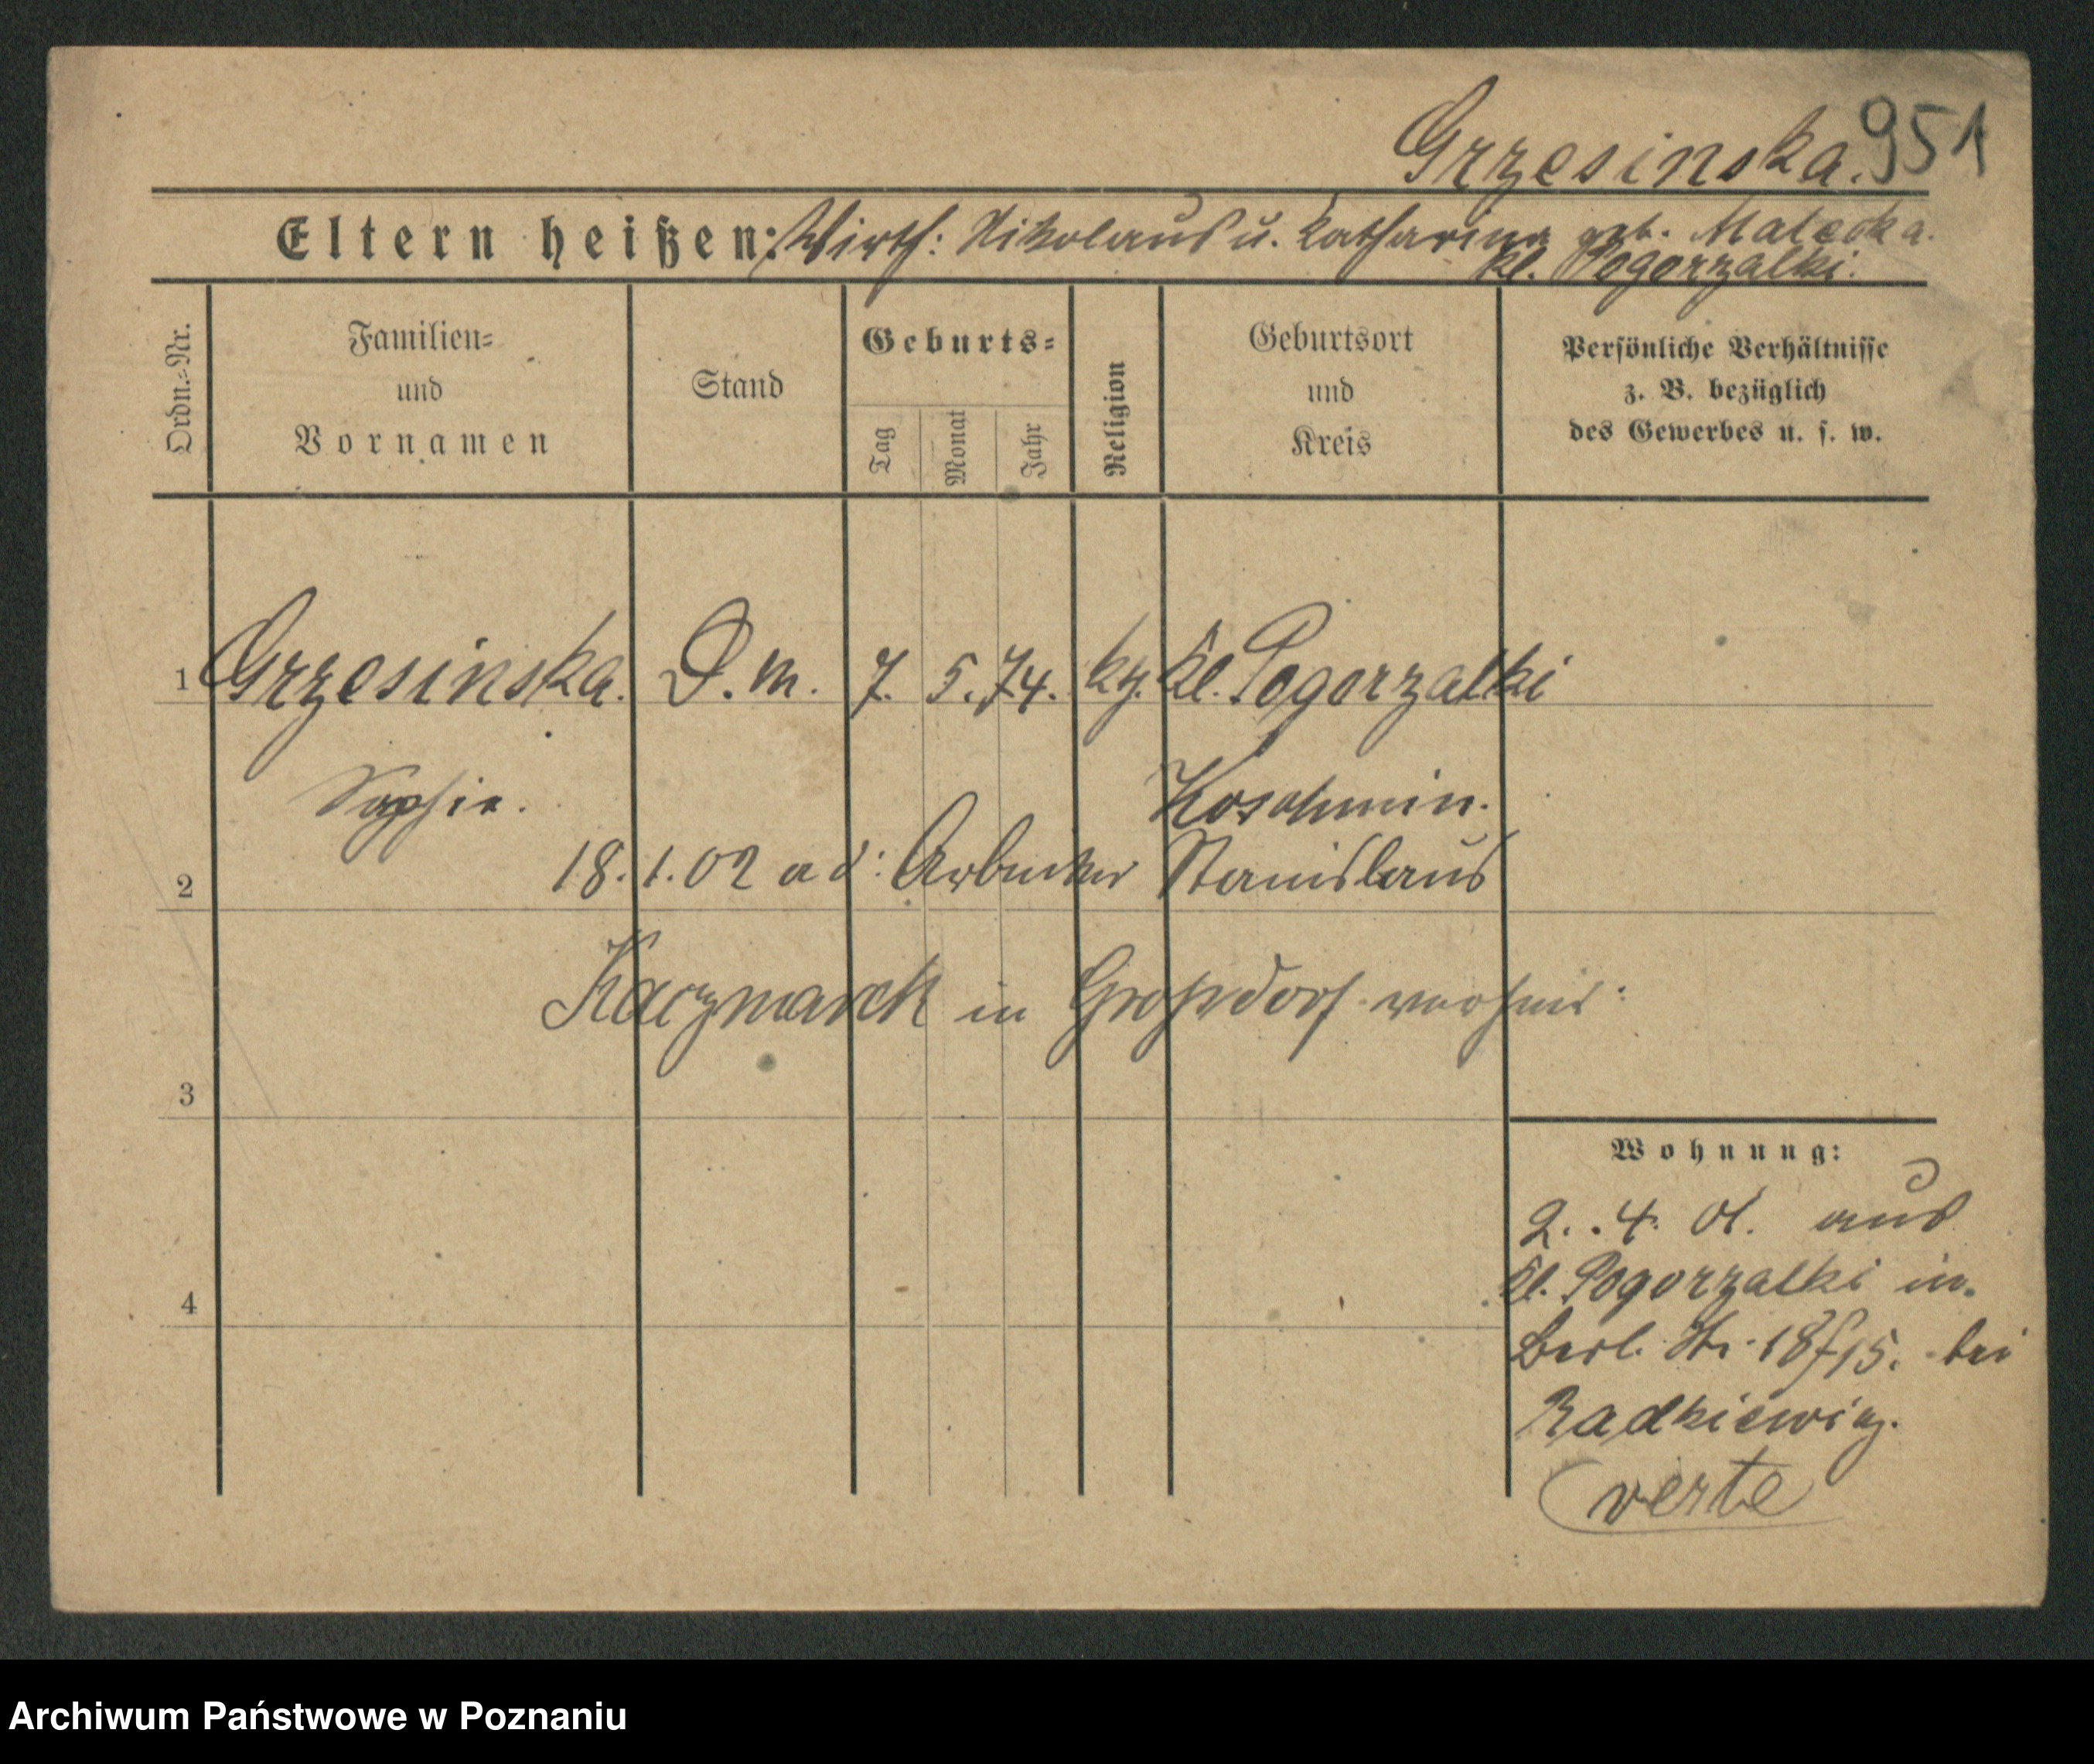 Grzesinska. 951
Eltern heißen: Wirth: Nikolaus u. Katharina geb. Matecka.
Kl. Pogorzalki.
Ordn.-Nr.
Familien-
und
Vornamen
Stand
Geburts-
Tag
Monat
Jahr
Religion
Geburtsort
und
Kreis
Persönliche Verhältnisse
z. B. bezüglich
des Gewerbes u. s. w.
1 Grzesinska. D. m. 7. 5. 74. Kl. Pogorzalki
Sophie. Koschmin.
2 18.1.02 a d: Arbeiter Stanislaus
Kaczmarek in
3
Wohnung:
2. 4. 01. aus
Kl. Pogorzalki in
Berl. Str. 18f15. bei
Radkiewicz.
4
verte
Archiwum Państwowe w Poznaniu